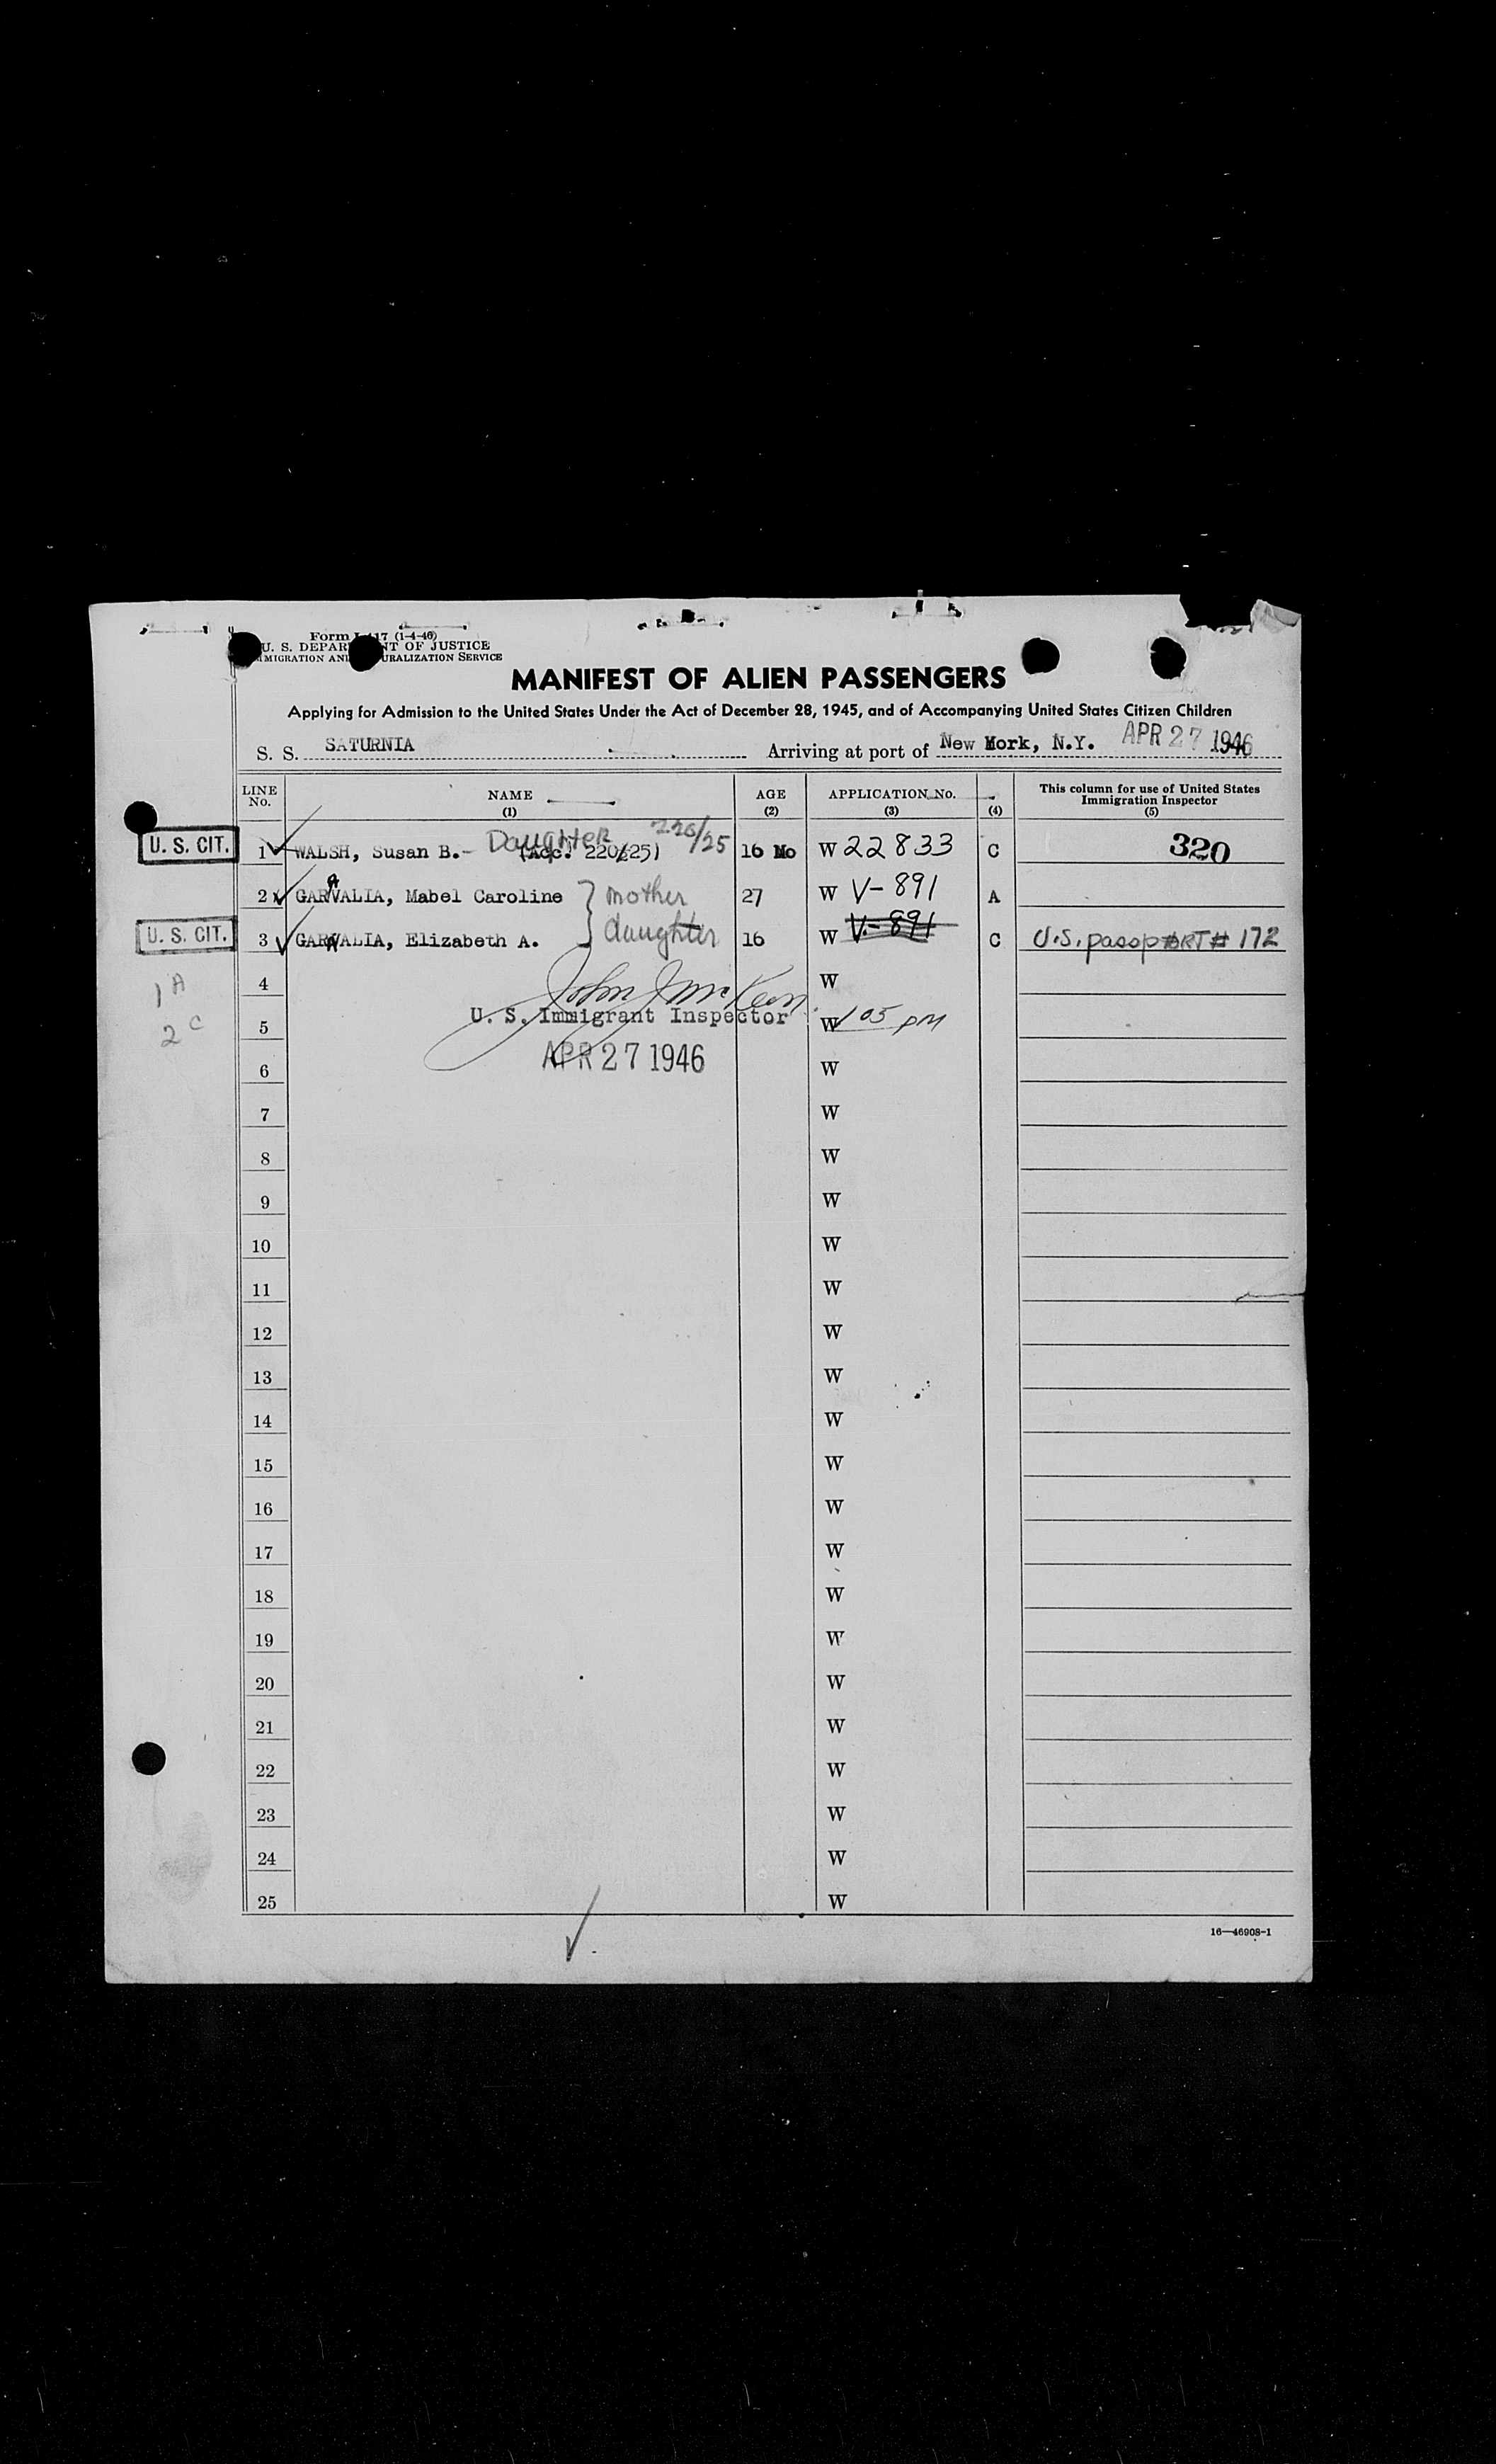 Form I-417 (1-4-46)
U. S. DEPARTMENT OF JUSTICE
IMMIGRATION AND NATURALIZATION SERVICE
MANIFEST OF ALIEN PASSENGERS
Applying for Admission to the United States Under the Act of December 28, 1945, and of Accompanying United States Citizen Children
S. S. SATURNIA Arriving at port of New York, N.Y. APR 27 1946
LINE No. NAME (1) AGE (2) APPLICATION No. (3) (4) This column for use of United States Immigration Inspector (5)
Daughter 220/25
U. S. CIT. 1 WALSH, Susan B.- (Acc. 220/25) 16 Mo W 22833 C 320
2 GARAVALIA, Mabel Caroline } mother 27 W V-891 A
U. S. CIT. 3 GARAVALIA, Elizabeth A. daughter 16 W V-891 C U.S. passport # 172
1 A 4 W
John J McKeon
2 C 5 U. S. Immigrant Inspector W 1 05 PM
6 APR 27 1946 W
7 W
8 W
9 W
10 W
11 W
12 W
13 W
14 W
15 W
16 W
17 W
18 W
19 W
20 W
21 W
22 W
23 W
24 W
25 W
16—46908-1